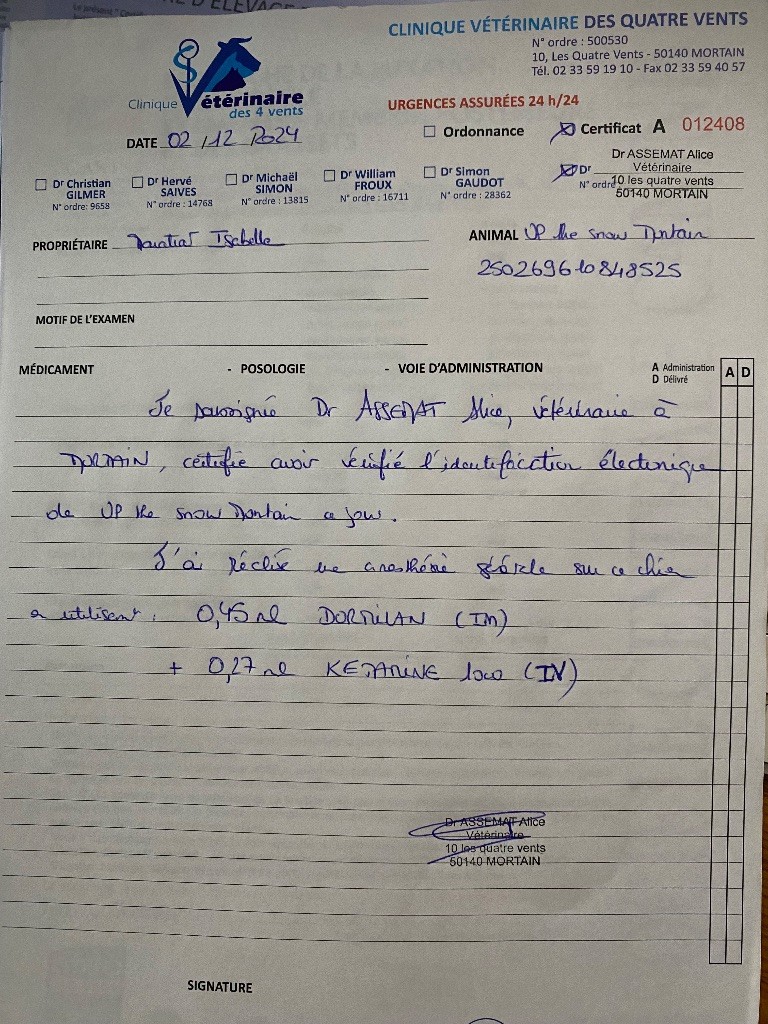 CLINIQUE VÉTÉRINAIRE DES QUATRE VENTS
N° ordre : 500530
10, Les Quatre Vents - 50140 MORTAIN
Tél. 02 33 59 19 10 - Fax 02 33 59 40 57
Clinique Vétérinaire
des 4 vents
URGENCES ASSURÉES 24 h/24
DATE 02 / 12 2024
Ordonnance
Certificat A 012408
Dr Christian GILMER
N° ordre: 9658
Dr Hervé SAIVES
N° ordre : 14768
Dr Michaël SIMON
N° ordre : 13815
Dr William FROUX
N° ordre : 16711
Dr Simon GAUDOT
N° ordre : 28362
Dr
N° ordre
Dr ASSEMAT Alice
Vétérinaire
10 les quatre vents
50140 MORTAIN
PROPRIÉTAIRE Isabelle
ANIMAL UP the snow
250269610848525
MOTIF DE L'EXAMEN
MÉDICAMENT - POSOLOGIE - VOIE D'ADMINISTRATION
A Administration
D Délivré
A D
Je Dr ASSEMAT Alice, vétérinaire à
MORTAIN, certifie avoir vérifié l'identification électronique
de UP the snow ce jour.
J'ai réalisé une anesthésie générale sur ce chien
en utilisant : 0,45 ml (IM)
+ 0,27 ml KETAMINE 1000 (IV)
Dr ASSEMAT Alice
Vétérinaire
10 les quatre vents
50140 MORTAIN
SIGNATURE